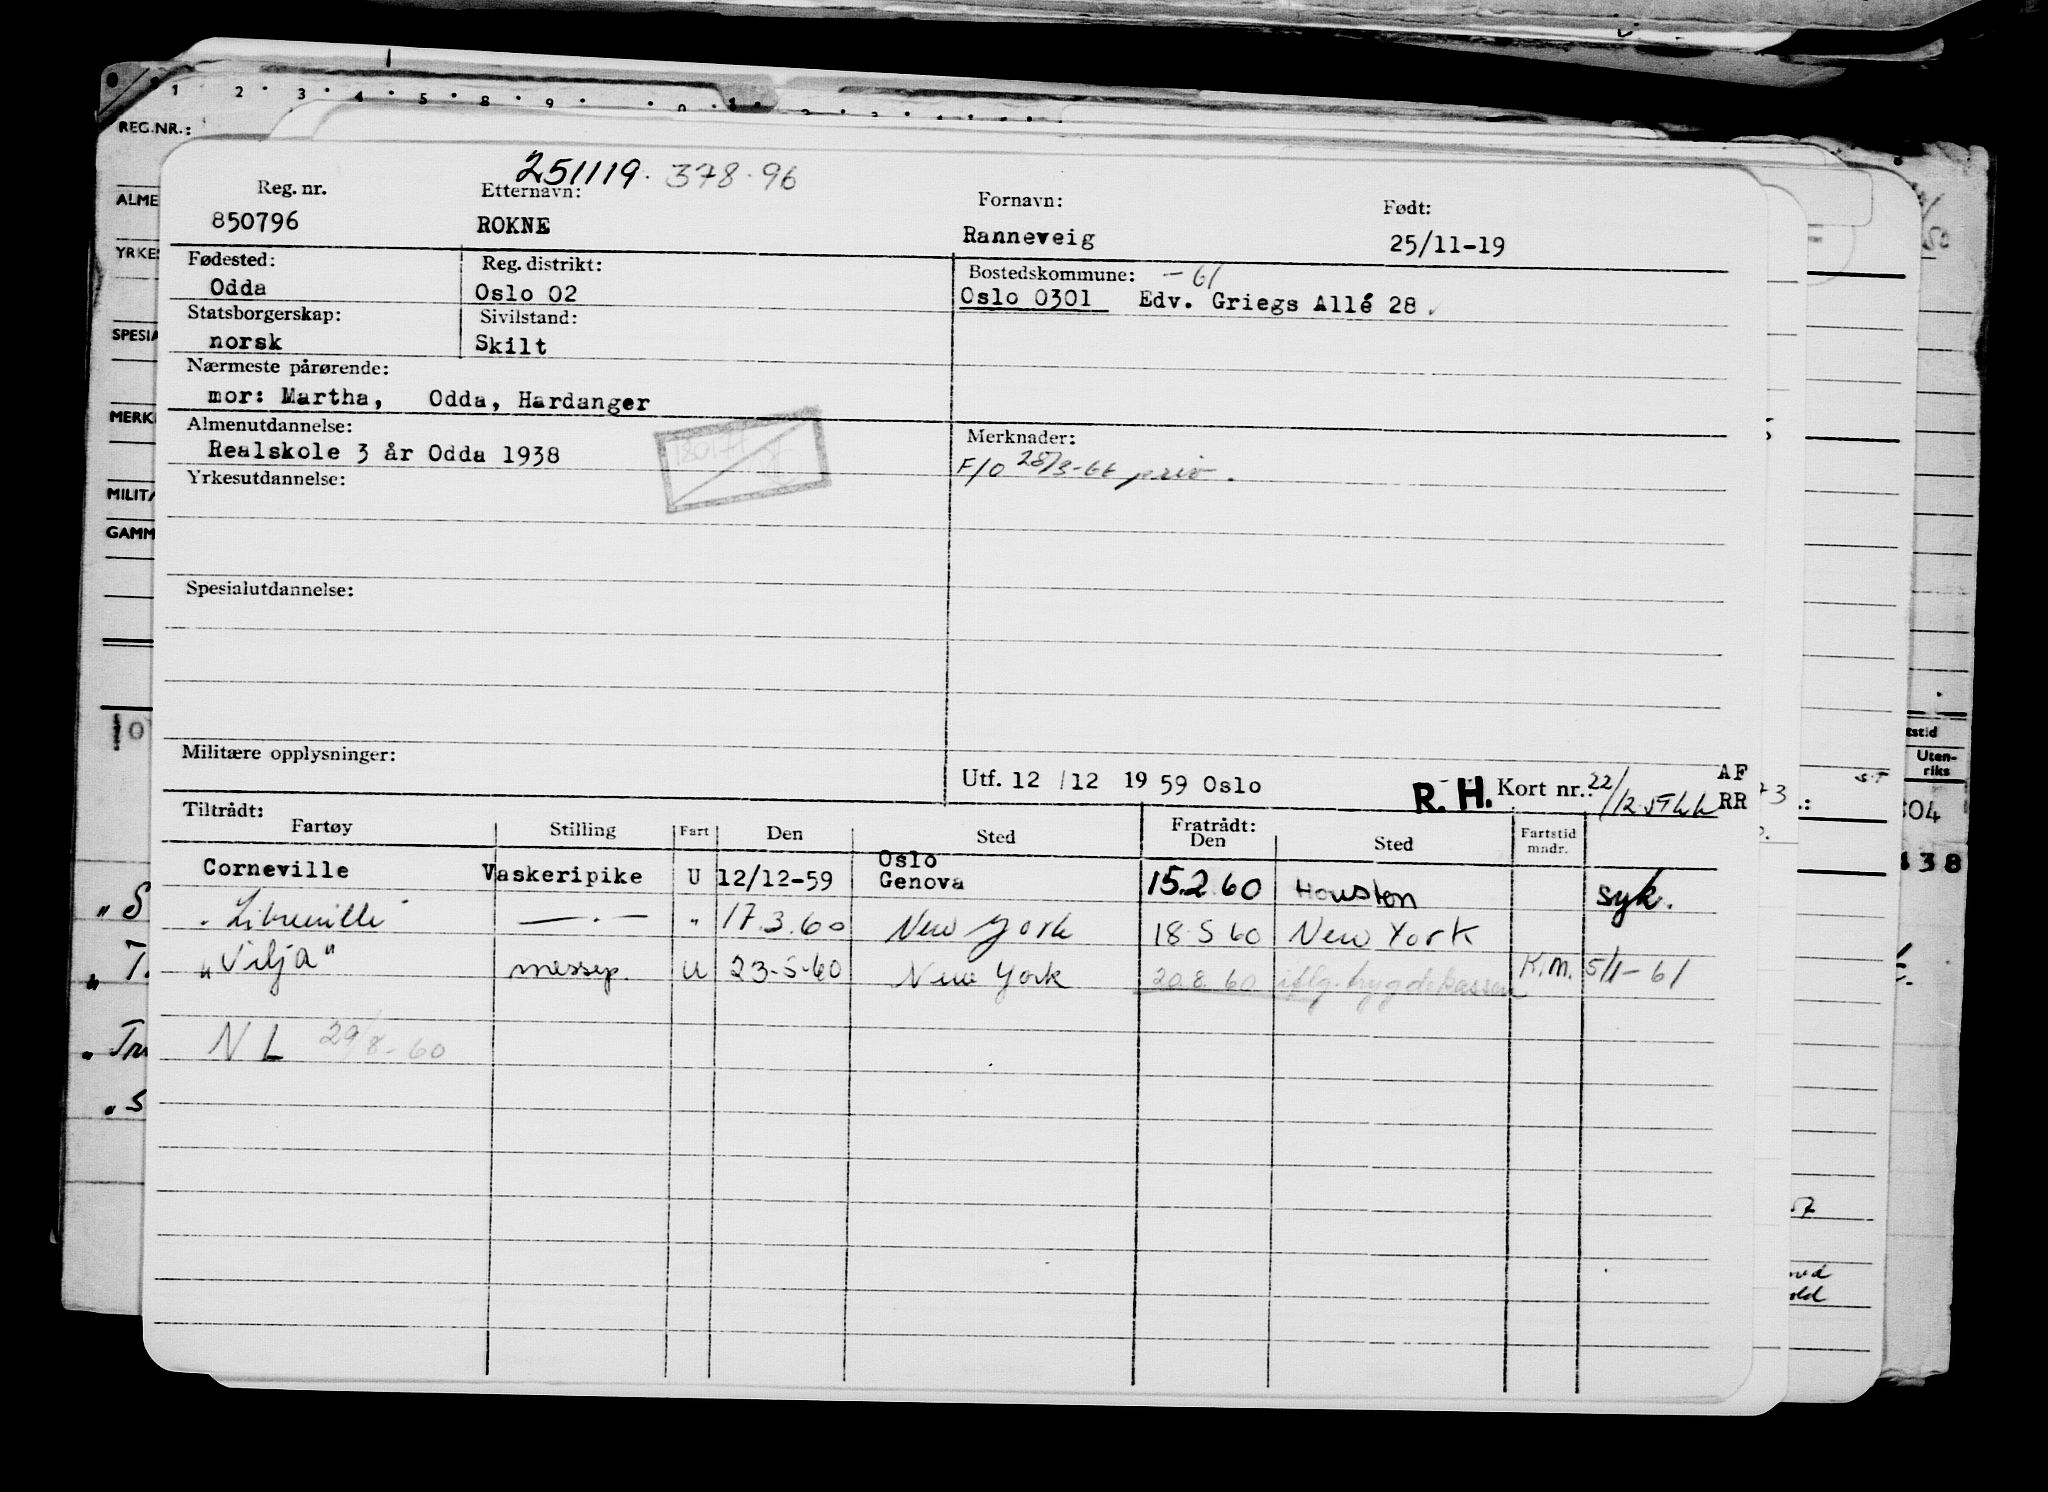 1 2 3 4 5 8 9
REG.NR.:
ALME
YRKES
SPESIA
MERK
MILITA
GAMM
251119. 378.96
Reg. nr. Etternavn: Fornavn: Født:
850796 ROKNE Ranneveig 25/11-19
Fødested: Reg. distrikt: Bostedskommune: -61
Odda Oslo 02 Oslo 0301 Edv. Griegs Allé 28
Statsborgerskap: Sivilstand:
norsk Skilt
Nærmeste pårørende:
mor: Martha, Odda, Hardanger
Almenutdannelse: Merknader:
Realskole 3 år Odda 1938 F/O 28/3-66 priv.
Yrkesutdannelse:
Spesialutdannelse:
Militære opplysninger:
Utf. 12 / 12 19 59 Oslo R. H. Kort nr.: 22/12 AF
RR
Tiltrådt: Fratrådt:
Fartøy Stilling Fart Den Sted Den Sted Fartstid mndr.
Corneville Vaskeripike U 12/12-59 Oslo Genova 15.2.60 Houston syk.
"Libreville" —"— " 17.3.60 New York 18.5.60 New York
"Vilja" messep. U 23-5-60 New York 20.8.60 iflg. trygdekassen K.M. 5/1-61
N L 29/8-60
tstid
Uten-
riks
304
438